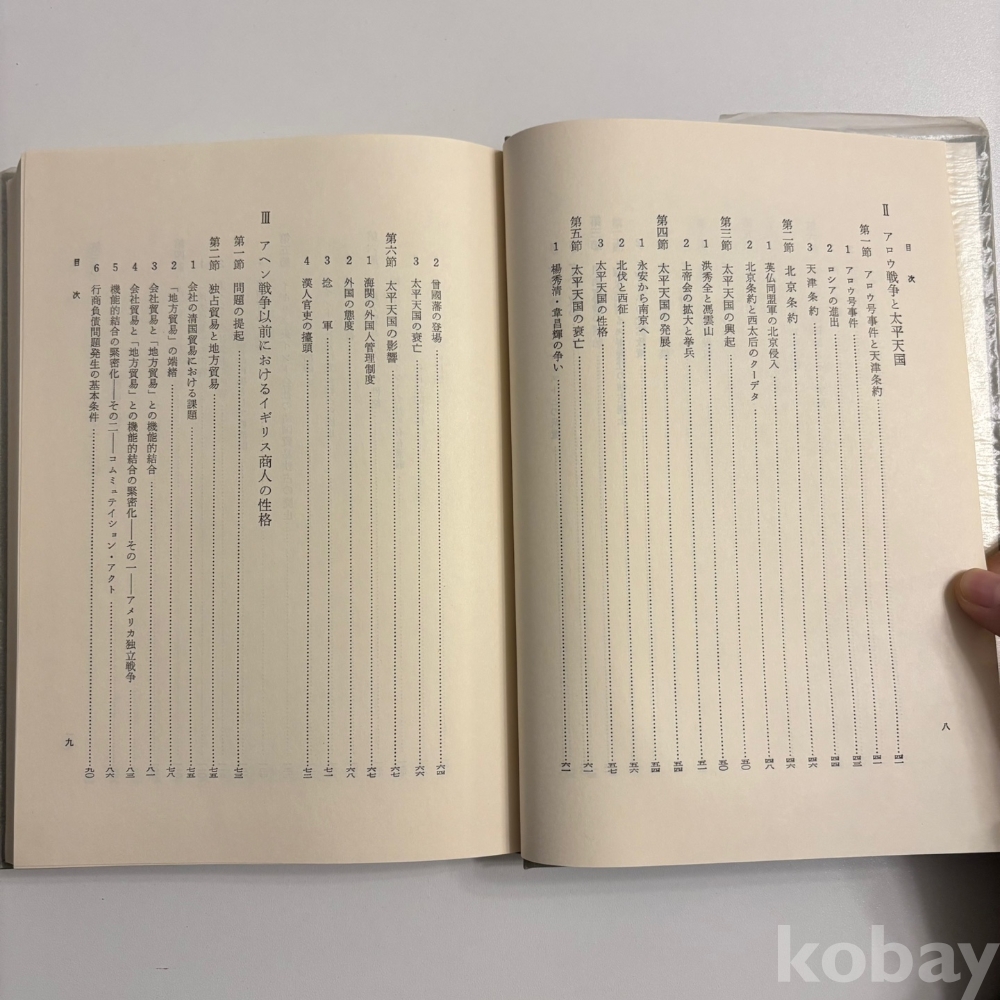 目次
八
II アロウ戦争と太平天国……四一
第一節 アロウ号事件と天津条約……四一
1 アロウ号事件……四三
2 ロシアの進出……四四
3 天津条約……四六
第二節 北京条約……四六
1 英仏同盟軍の北京侵入……四八
2 北京条約と西太后のクーデタ……五〇
第三節 太平天国の興起……五〇
1 洪秀全と馮雲山……五一
2 上帝会の拡大と挙兵……五四
第四節 太平天国の発展……五四
1 永安から南京へ……五六
2 北伐と西征……五七
3 太平天国の性格
第五節 太平天国の衰亡……六一
1 楊秀清・韋昌輝の争い……六一
2 曾國藩の登場……六四
3 太平天国の衰亡……六六
第六節 太平天国の影響……六七
1 海関の外国人管理制度……六七
2 外国の態度……六八
3 捻軍……七一
4 漢人官吏の擡頭……七二
III アヘン戦争以前におけるイギリス商人の性格
第一節 問題の提起……七三
第二節 独占貿易と地方貿易……七五
1 会社の清国貿易における課題……七五
2 「地方貿易」の端緒……七八
3 会社貿易と「地方貿易」との機能的結合……八一
4 会社貿易と「地方貿易」との機能的結合の緊密化——その一——アメリカ独立戦争……八三
5 機能的結合の緊密化——その二——コムミュテイション・アクト……八六
6 行商負債問題発生の基本条件……九〇
目次
九
kobay